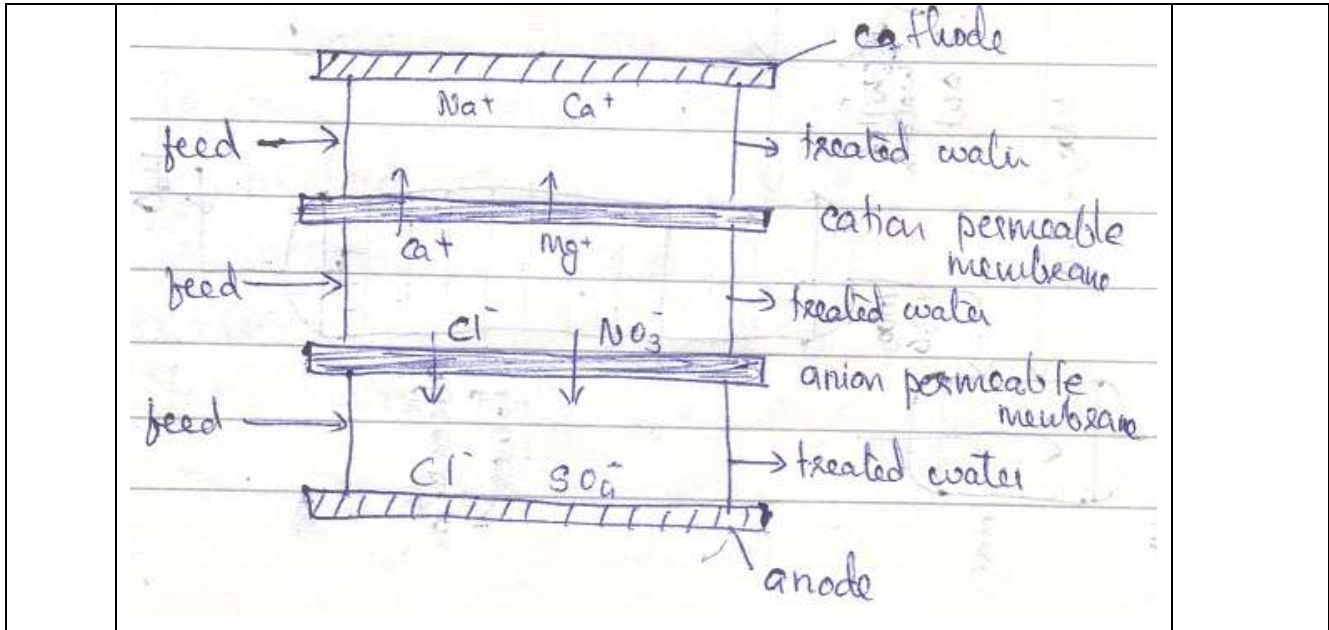 cathode
Na+ Ca+
feed → → treated wate
Ca+ Mg+ cation permeable
membrane
feed → → treated water
Cl- NO3-
anion permeable
menbrane
feed → → treated water
Cl- SO4-
anode